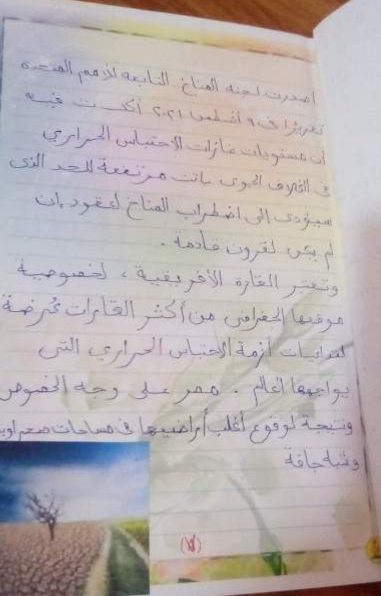 اصدرت لجنة المناخ التابعة للأمم المتحدة
تقريرًا في ٩ أغسطس ٢٠٢١ أكدت فيه
أن مستويات غازات الاحتباس الحراري
في الغلاف الجوى باتت مرتفعة للحد الذى
سيؤدى إلى اضطراب المناخ لعقود إن
لم يكن لقرون قادمة .
وتعتبر القارة الأفريقية ، لخصوصية
موقعها الجغرافى من أكثر القارات عُرضة
لتداعيات أزمة الاحتباس الحراري التى
يواجهها العالم . مصر على وجه الخصوص
ونتيجة لوقوع أغلب أراضيها في مساحات صحراوية
وشبه جافة